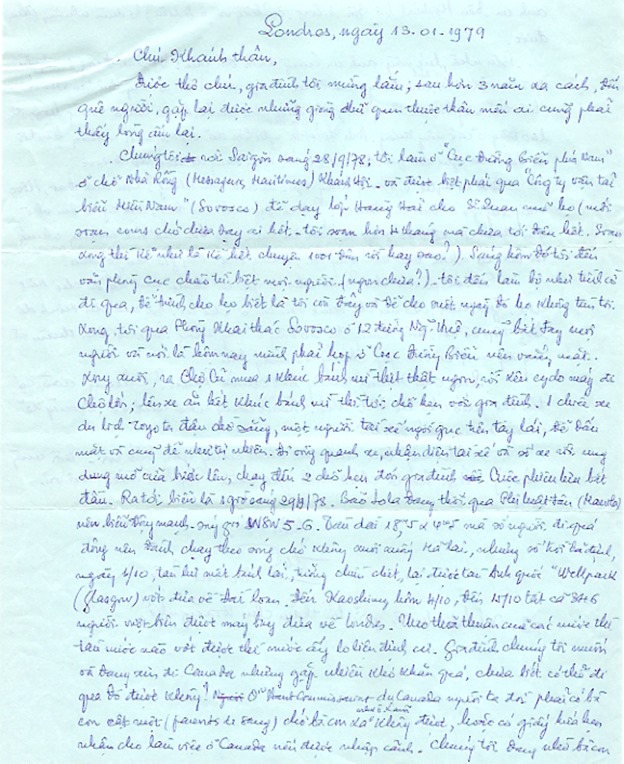 Londres, ngày 13.01.1979
Chú Khánh thân,
Được thơ chú, gia đình tôi mừng lắm; sau hơn 3 năm xa cách, đến
quê người, gặp lại được những giòng chữ quen thuộc thân mến ai cũng phải
thấy lòng ấm lại.
Chúng tôi rời Saigon sáng 28/9/78, tôi làm ở "Cục Đường Biển phía Nam"
ở chỗ Nhà Rồng (Messageries Maritimes) Khánh Hội - và được biệt phái qua "Công ty vận tải
biển Miền Nam" (Sovosco) để dạy lớp Hàng Hải cho Sĩ Quan của họ (mới
soạn cours chớ chưa dạy ai hết - tôi soạn hơn tháng mà chưa tới đâu hết.
hay sao?). Sáng hôm đó tôi đến
văn phòng cục chào từ biệt mọi người (ngon chưa?) - tôi đến làm bộ như tình cờ
đi qua, để trình cho họ biết là tôi còn đây và để cho một ngày đó họ không tìm tôi.
Xong, tôi qua Phòng Khai thác Sovosco ở 12 đường Ng. Huệ, cũng bắt tay mọi
người và nói là hôm nay mình phải họp ở Cục Đường Biển nên vắng mặt.
Xong xuôi, ra Chợ Cũ mua 1 khúc bánh mì thịt thật ngon, rồi kêu cyclo máy đi
Chợ lớn; lên xe ăn hết khúc bánh mì thì tới chỗ hẹn với gia đình. 1 chiếc xe
du lịch Toyota đậu chờ sẵng, một người tài xế ngồi gục trên tay lái, để dấu
mặt và cũng để như tự nhiên. Đi vòng quanh xe, nhận diện tài xế và số xe rồi, ung
dung mở cửa bước lên, chạy đến 2 chỗ hẹn đón gia đình. Cuộc phiêu lưu bắt
đầu. Ra tới biển là 1 giờ sáng 29/9/78. Bão Lola đang thổi qua Phi luật Tân
nên biển động mạnh - sóng gió WSW 5-6. mà số người đi quá
đông nên đành chạy theo sóng chớ không xuôi xuống Mã lai,
ngày 1/10, tàu hư một bánh lái, tưởng chìm chết, lại được tàu Anh quốc "Wellpark"
(Glasgow) vớt đưa về Đài loan. Đến Kaoshiung hôm 4/10, đến 15/10 tất cả 346
người vượt biên được máy bay đưa về londres. Theo thỏa thuận của các nước thì
tàu nước nào vớt được thì nước ấy lo liệu định cư. Gia đình chúng tôi muốn
và đang xin đi Canada nhưng gặp nhiều khó khăn quá, chưa biết có thể đi
qua đó được không! Ở Haut Commissariat du Canada người ta đòi phải có bà
con ruột một (parents de sang) chớ bà con xa không được, hoặc có giòng
nhận cho làm việc ở Canada mới được nhập cảnh. Chúng tôi đang nhờ bà con